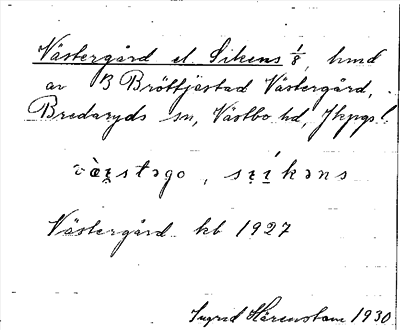 Västergård el. Sikens 1/8, hmd
av B Bröttjestad Västergård,
Bredaryds sn, Västbo hd, Jkpgs l.
Västergård kb 1927
Ingrid Härenstam 1930